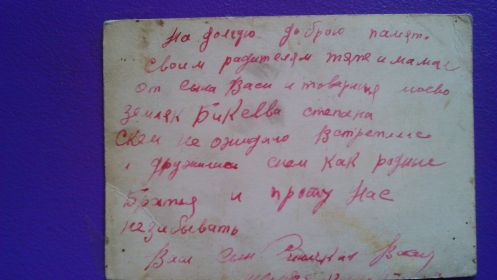 На долгую доброю памят.
своим радителям тяте и маме
от сына Васи и товарища моево
земляк Бикеева степана
скем не ожидано встретился
и дружился снем как родные
Братья и прошу Нас
незабывать
Ваш сын Вася